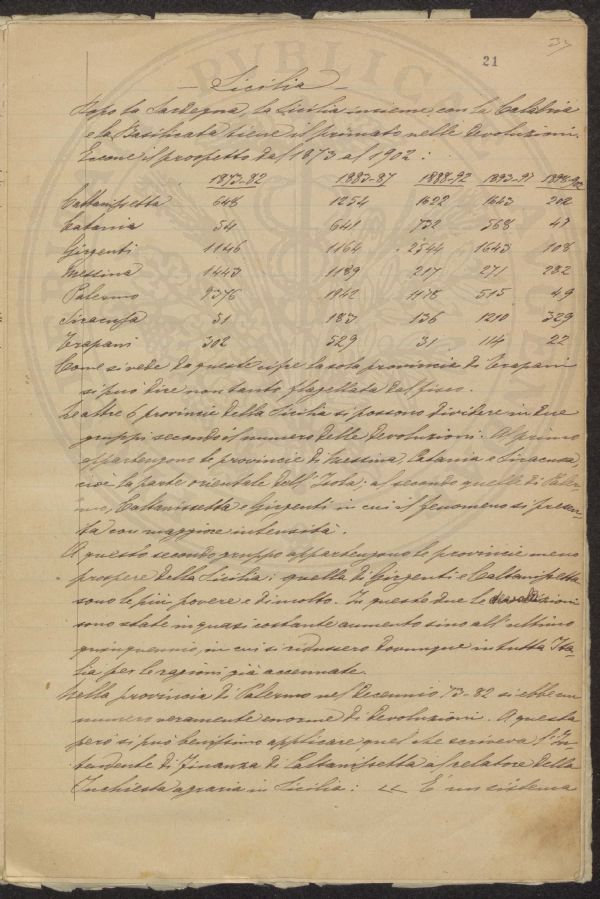 37
21
— Sicilia —
Dopo la Sardegna, la Sicilia insieme con la Calabria
e la Basilicata tiene il primato nelle devoluzioni.
Eccone il prospetto dal 1873 al 1902:
1873-82 1883-87 1888-92 1893-97 1898-902
Caltanissetta 648 1254 1622 1643 202
Catania 54 641 732 568 47
Girgenti 1146 1164 2544 1643 108
Messina 1443 1189 217 271 282
Palermo 9376 1942 1178 515 49
Siracusa 51 183 136 1210 329
Trapani 302 529 31 114 22
Come si vede da queste cifre la sola provincia di Trapani
si può dire non tanto flagellata dal fisco.
Le altre 6 provincie della Sicilia si possono dividere in due
gruppi secondo il numero delle devoluzioni. Al primo
appartengono le provincie di Messina, Catania e Siracusa,
cioè la parte orientale dell'Isola; al secondo quelle di Paler-
mo, Caltanissetta e Girgenti in cui il fenomeno si presen-
ta con maggiore intensità.
A questo secondo gruppo appartengono le provincie meno
prospere della Sicilia: quella di Girgenti e Caltanissetta
sono le più povere e di molto. In queste due le devoluzioni
sono state in quasi costante aumento sino all'ultimo
quinquennio, in cui si ridussero dovunque in tutta Ita-
lia per le ragioni già accennate.
Nella provincia di Palermo nel decennio 73-82 si ebbe un
numero veramente enorme di devoluzioni. A questa
però si può benissimo applicare quel che scriveva l'In-
tendente di Finanza di Caltanissetta al relatore della
Inchiesta agraria in Sicilia: « È un sistema